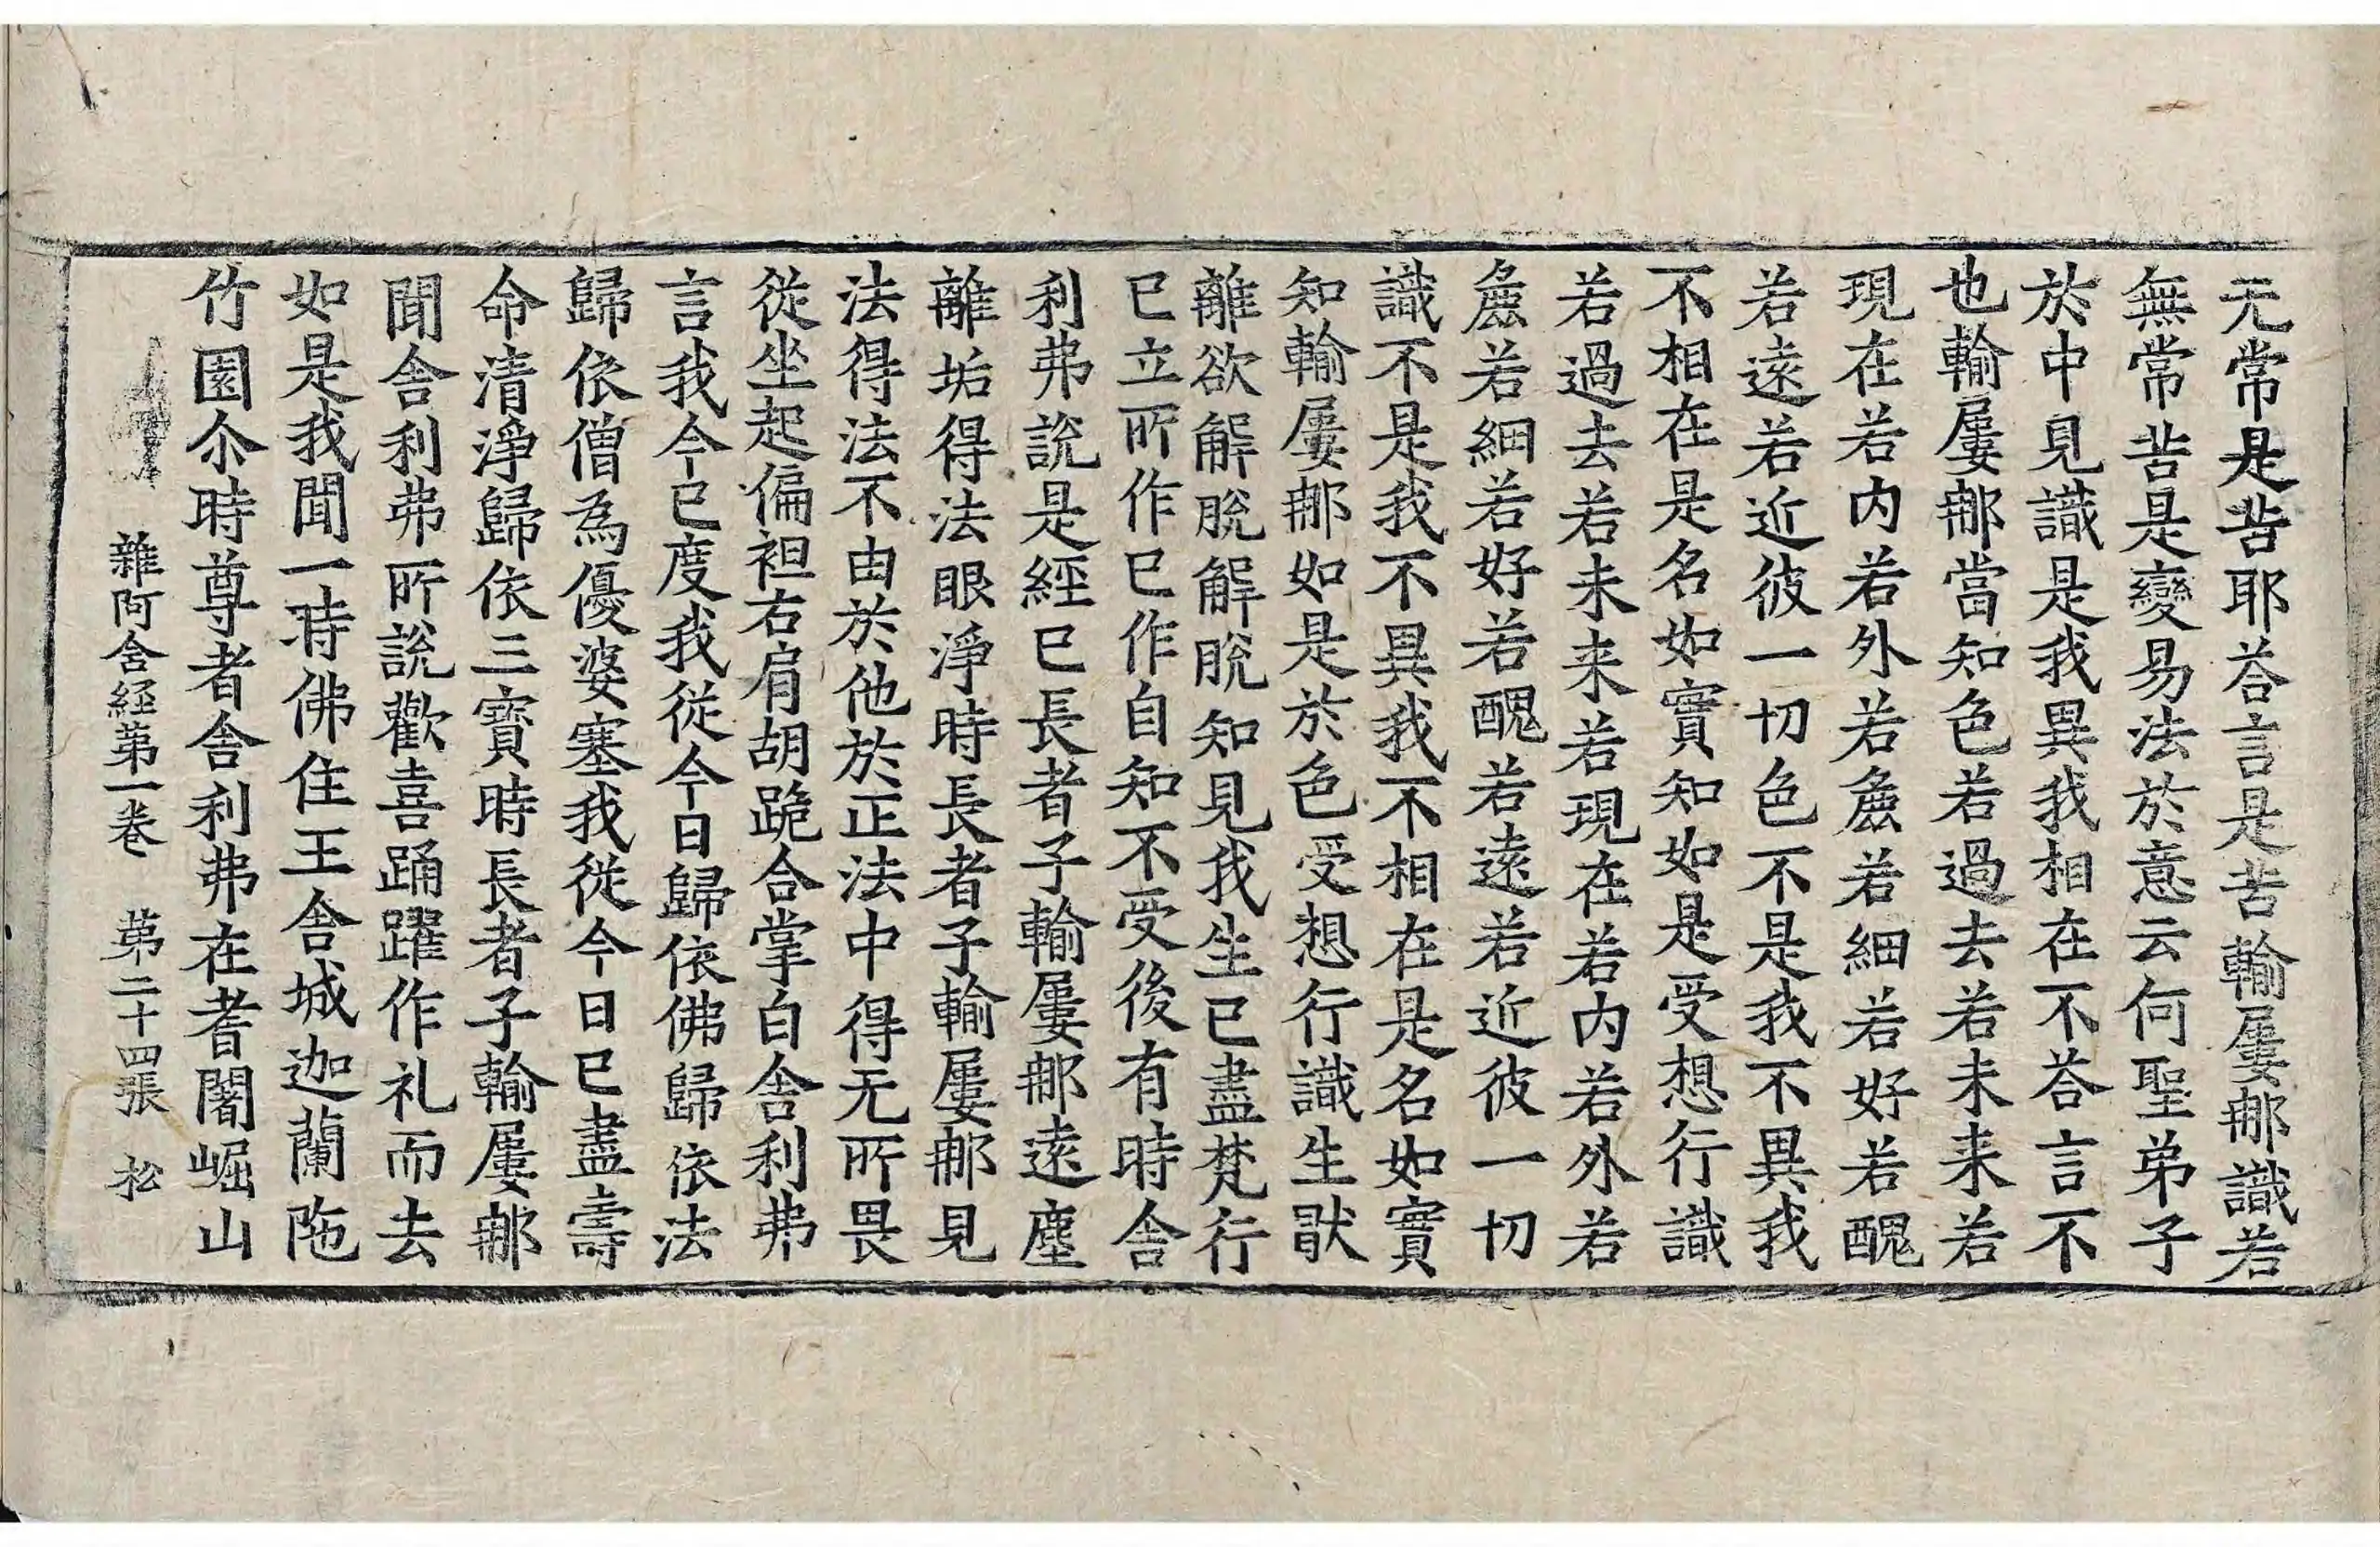 无常是苦耶荅言是苦輸屢那識若
無常苦是變易法於意云何聖弟子
於中見識是我異我相在不荅言不
也輸屢那當知色若過去若未来若
現在若内若外若麁若細若好若醜
若遠若近彼一切色不是我不異我
不相在是名如實知如是受想行識
若過去若未来若現在若内若外若
麁若細若好若醜若遠若近彼一切
識不是我不異我不相在是名如實
知輸屢那如是於色受想行識生猒
離欲解脫解脫知見我生已盡梵行
已立所作已作自知不受後有時舍
利弗說是經已長者子輸屢那遠塵
離垢得法眼淨時長者子輸屢那見
法得法不由於他於正法中得无所畏
從坐起偏袒右肩胡跪合掌白舍利弗
言我今已度我從今日歸依佛歸依法
歸依僧為優婆塞我從今日已盡壽
命清淨歸依三寶時長者子輸屢那
聞舍利弗所說歡喜踊躍作礼而去
如是我聞一時佛住王舍城迦蘭陁
竹園尒時尊者舍利弗在耆闍崛山
雜阿含經第一卷 第二十四張 松